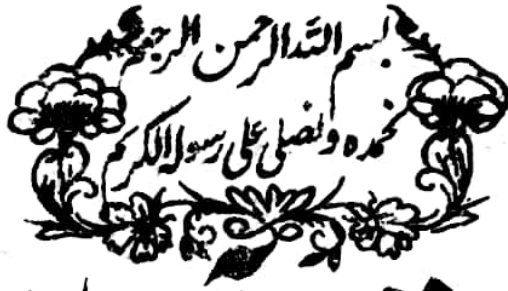 بسم اللہ الرحمن الرحیم
نحمدہ و نصلی علی رسولہ الکریم